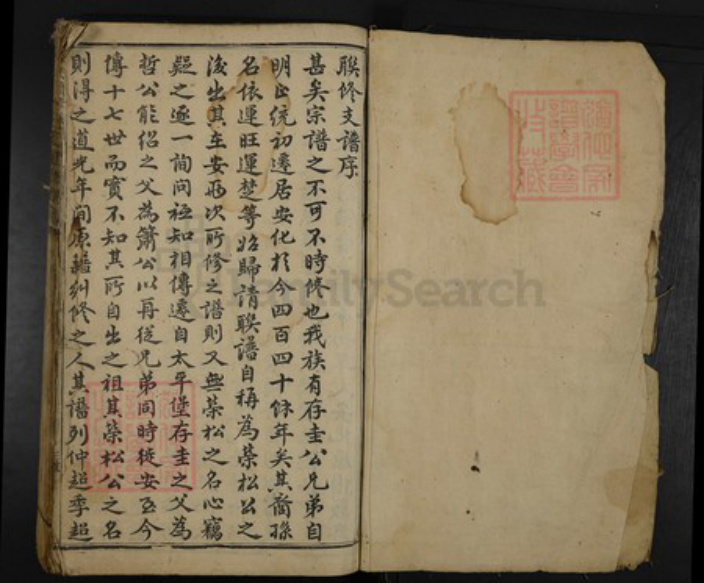 聯修支譜序
甚矣宗譜之不可不時修也我族有存圭公兄弟自
明正統初遷居安化於今四百四十餘年矣其裔孫
名依運旺運楚等始歸請聯譜自稱為榮松公之
後出其在安兩次所修之譜則又無榮松之名心竊
疑之逐一詢問祗知相傳遷自太平堡存圭之父為
哲公能紹之父為簫公以再從兄弟同時徙安至今
傳十七世而實不知其所自出之祖其榮松公之名
則得之道光年間原籍糾修之人其譜列仲超季超
FamilySearch